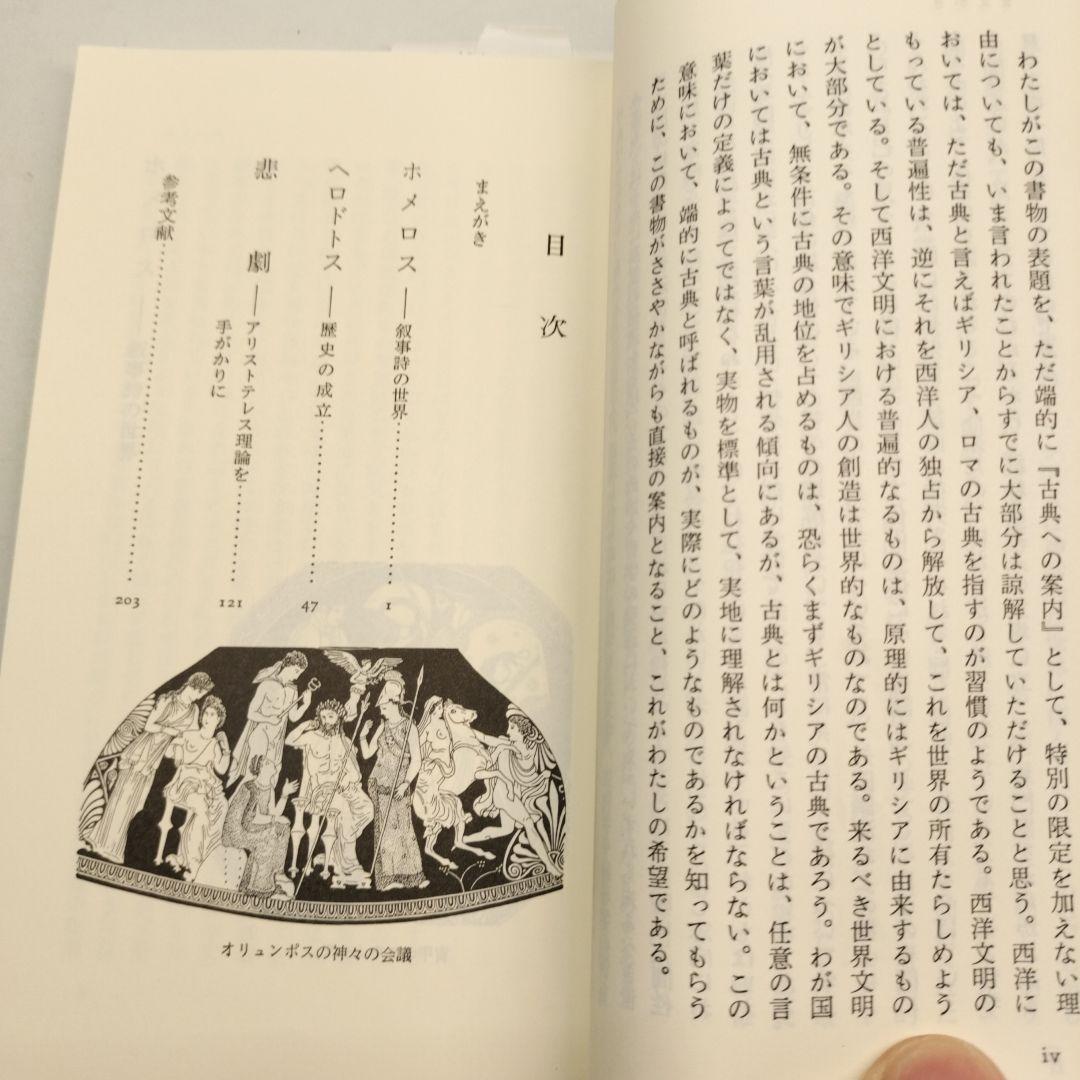 わたしがこの書物の表題を、ただ端的に『古典への案内』として、特別の限定を加えない理
由についても、いま言われたことからすでに大部分は諒解していただけることと思う。西洋に
おいては、ただ古典と言えばギリシア、ロマの古典を指すのが習慣のようである。西洋文明の
もっている普遍性は、逆にそれを西洋人の独占から解放して、これを世界の所有たらしめよう
としている。そして西洋文明における普遍的なるものは、原理的にはギリシアに由来するもの
が大部分である。その意味でギリシア人の創造は世界的なものなのである。来るべき世界文明
において、無条件に古典の地位を占めるものは、恐らくまずギリシアの古典であろう。わが国
においては古典という言葉が乱用される傾向にあるが、古典とは何かということは、任意の言
葉だけの定義によってではなく、実物を標準として、実地に理解されなければならない。この
意味において、端的に古典と呼ばれるものが、実際にどのようなものであるかを知ってもらう
ために、この書物がささやかながらも直接の案内となること、これがわたしの希望である。
iv
目次
まえがき
ホメロス――叙事詩の世界……………1
ヘロドトス――歴史の成立……………47
悲劇――アリストテレス理論を
手がかりに……………121
参考文献……………203
オリュンポスの神々の会議